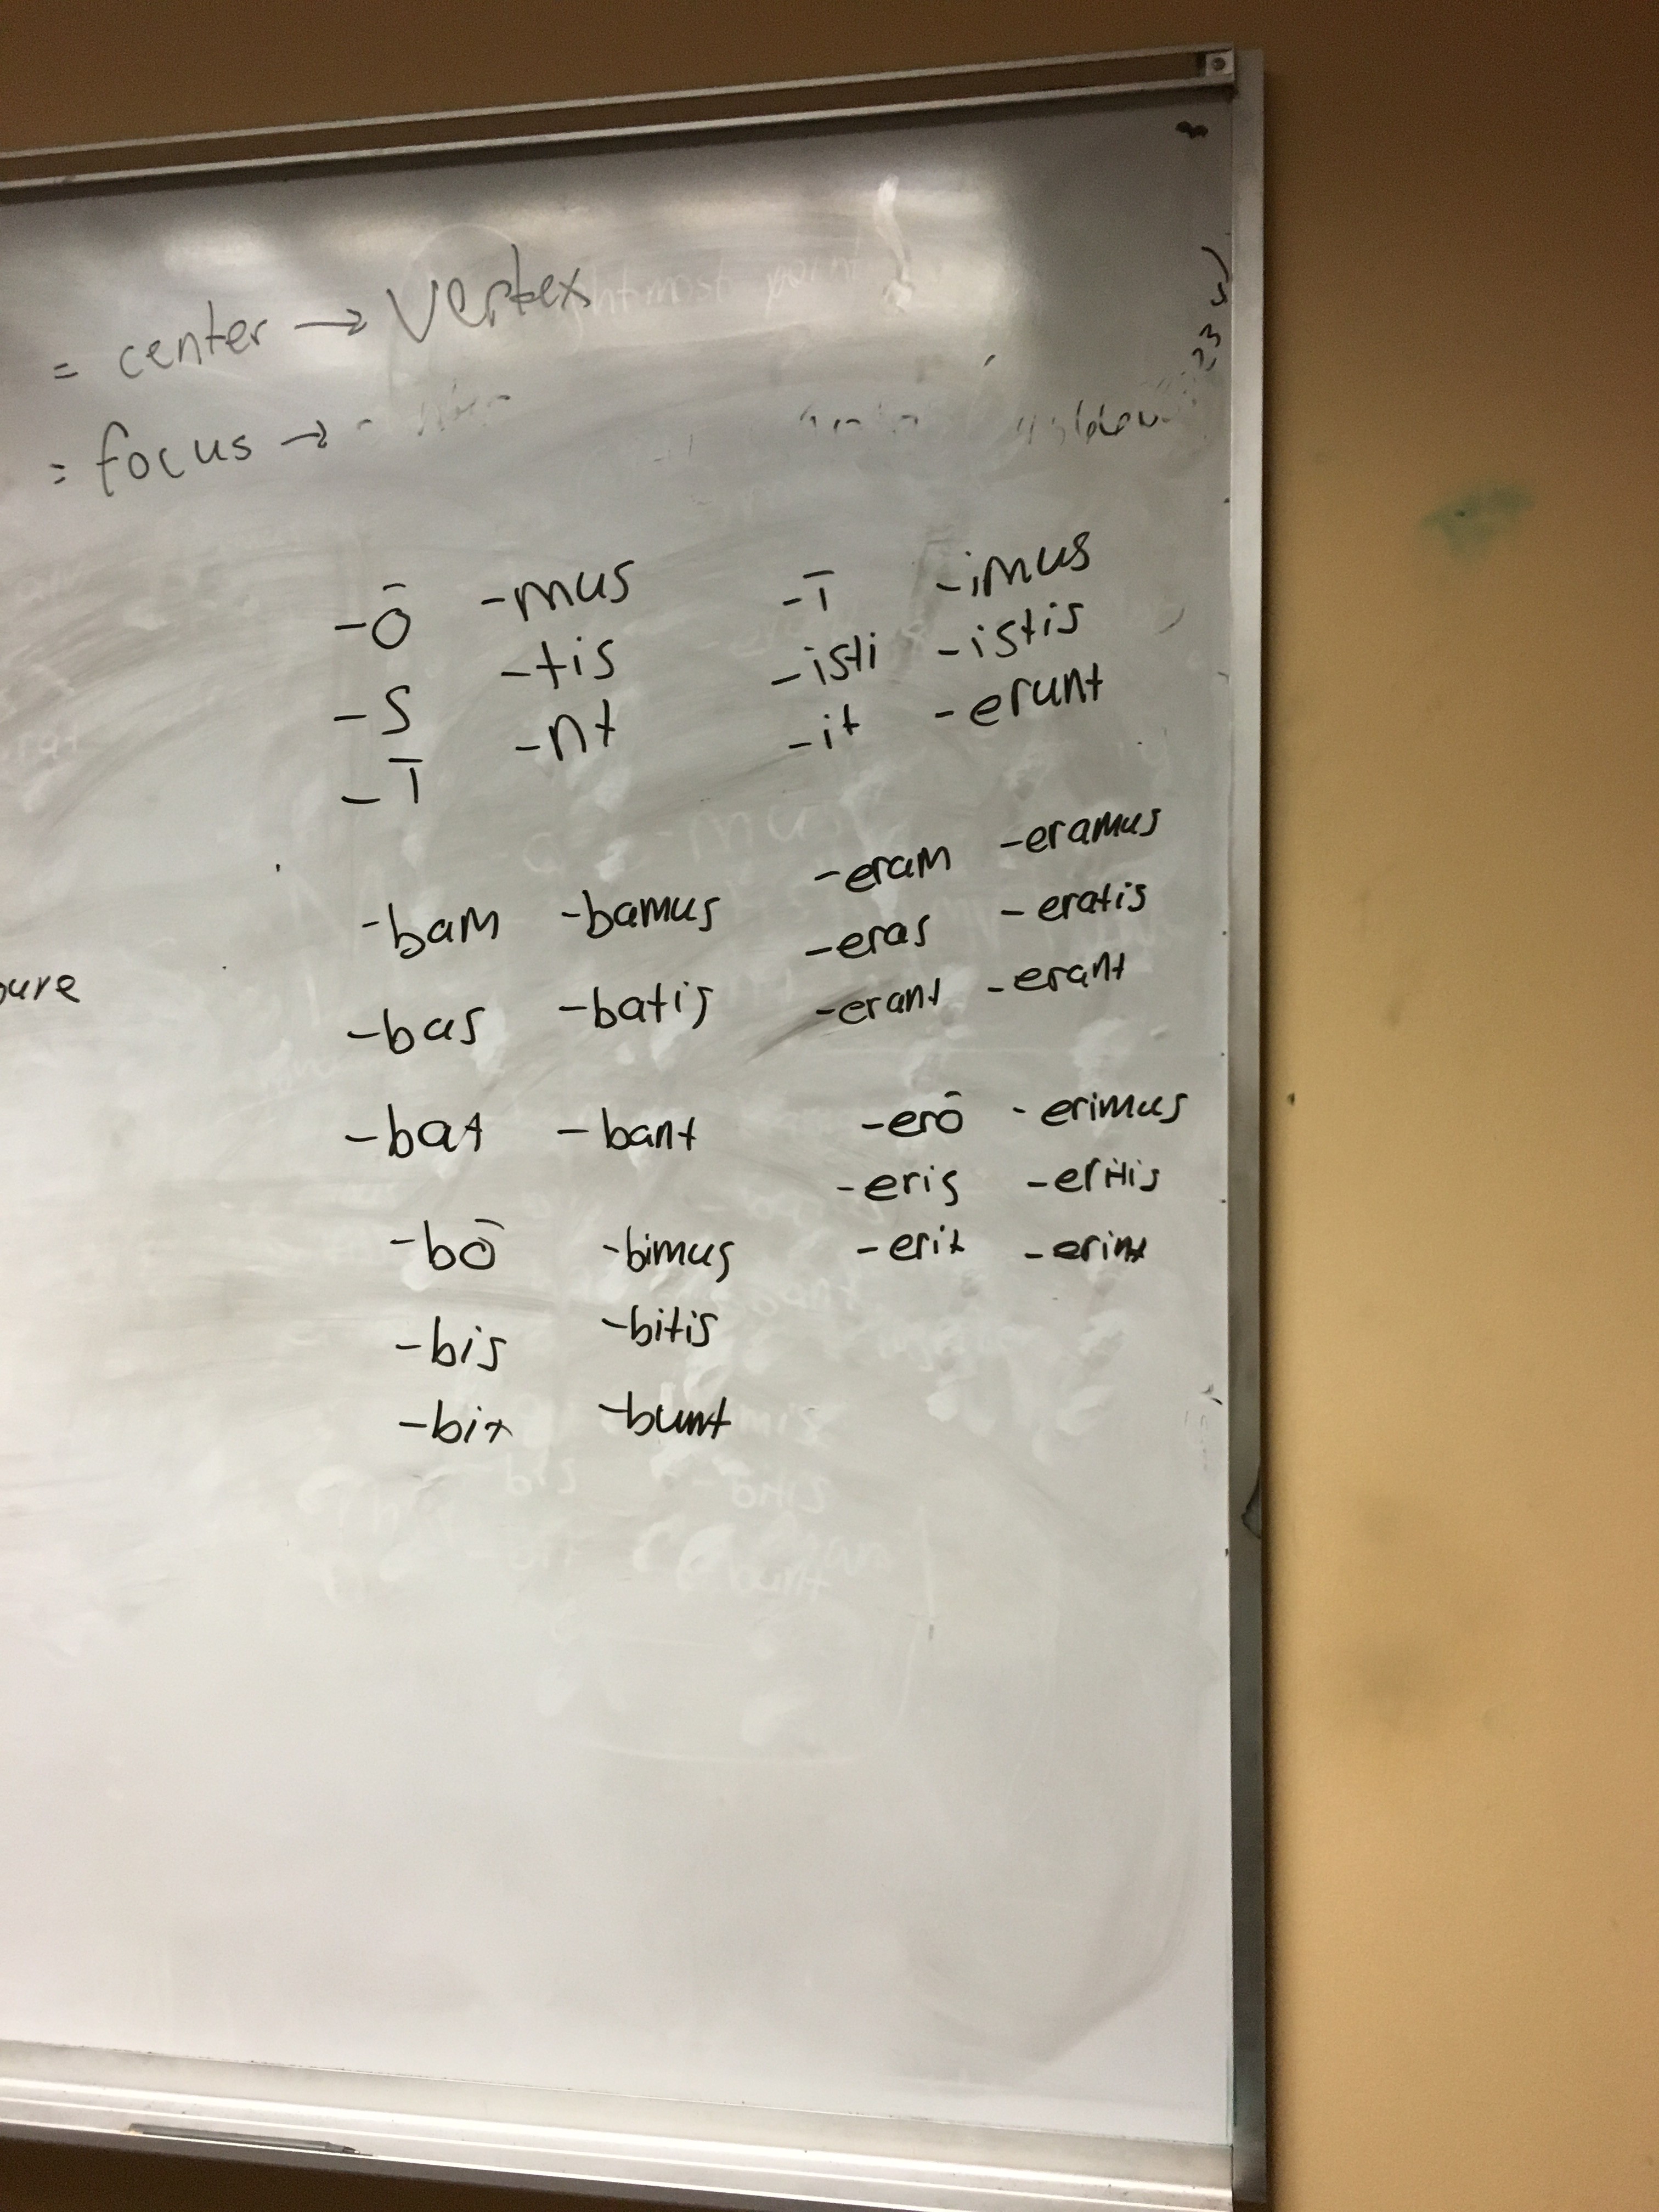 = center → Vertex
= focus →
-ō -mus -ī -imus
-s -tis -isti -istis
-ī -nt -it -erunt
-eram -eramus
-bam -bamus -eras -eratis
-bas -batis -erant -erant
-bat -bant -erō -erimus
-eris -eritis
-bō -bimus -erit -erint
-bis -bitis
-bit -bunt